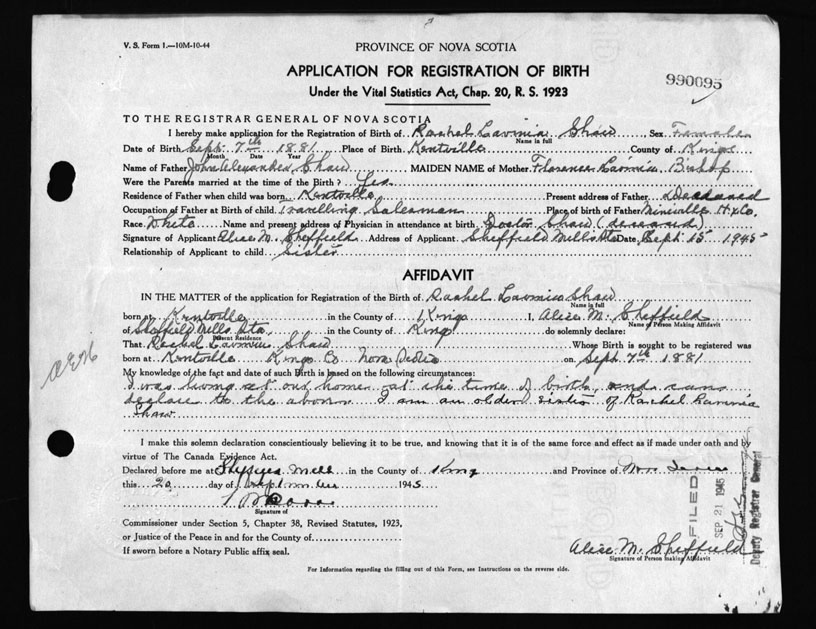 V. S. Form 1.—10M-10-44
PROVINCE OF NOVA SCOTIA
APPLICATION FOR REGISTRATION OF BIRTH
990095
Under the Vital Statistics Act, Chap. 20, R. S. 1923
TO THE REGISTRAR GENERAL OF NOVA SCOTIA
I hereby make application for the Registration of Birth of Rachel Lavinia Shaw Sex Female
Name in full
Date of Birth Sept. 7th 1881 Place of Birth Kentville County of Kings
Month Date Year
Name of Father John Alexander Shaw MAIDEN NAME of Mother Florence Lavinia Bishop
Were the Parents married at the time of the Birth? Yes
Residence of Father when child was born Kentville Present address of Father Deceased
Occupation of Father at Birth of child Travelling Salesman Place of birth of Father Hx Co.
Race White Name and present address of Physician in attendance at birth Doctor Shaw (deceased)
Signature of Applicant Alice M. Sheffield Address of Applicant Sheffield Mills Sta Date Sept 15 1945
Relationship of Applicant to child Sister
AFFIDAVIT
IN THE MATTER of the application for Registration of the Birth of Rachel Lavinia Shaw
Name in full
born at Kentville in the County of Kings I, Alice M. Sheffield
Name of Person Making Affidavit
of Sheffield Mills Sta. in the County of King do solemnly declare:
Present Residence
That Rachel Lavinia Shaw Whose Birth is sought to be registered was
born at Kentville Kings Co Nova Scotia on Sept 7th 1881
My knowledge of the fact and date of such Birth is based on the following circumstances:
I was living at our home at the time of birth, and can
declare to the above I am an older sister of Rachel Lavinia
Shaw
I make this solemn declaration conscientiously believing it to be true, and knowing that it is of the same force and effect as if made under oath and by
virtue of The Canada Evidence Act.
Declared before me at Mill in the County of King and Province of Nova Scotia
this 20 day of September 1945
Signature of
Commissioner under Section 5, Chapter 38, Revised Statutes, 1923,
or Justice of the Peace in and for the County of
If sworn before a Notary Public affix seal.
Alice M. Sheffield
Signature of Person making Affidavit
FILED
SEP 21 1945
Deputy Registrar General
For Information regarding the filling out of this Form, see Instructions on the reverse side.